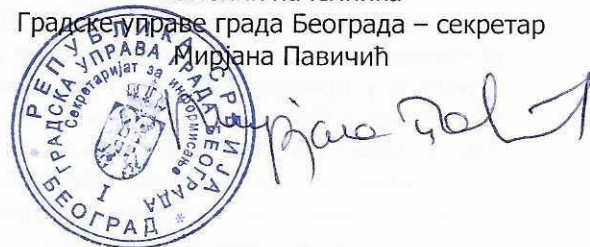 Градске управе града Београда – секретар
Мирјана Павичић
РЕПУБЛИКА СРБИЈА
ГРАДСКА УПРАВА ГРАДА БЕОГРАДА
Секретаријат за информисање
I
БЕОГРАД
Мирјана Павић